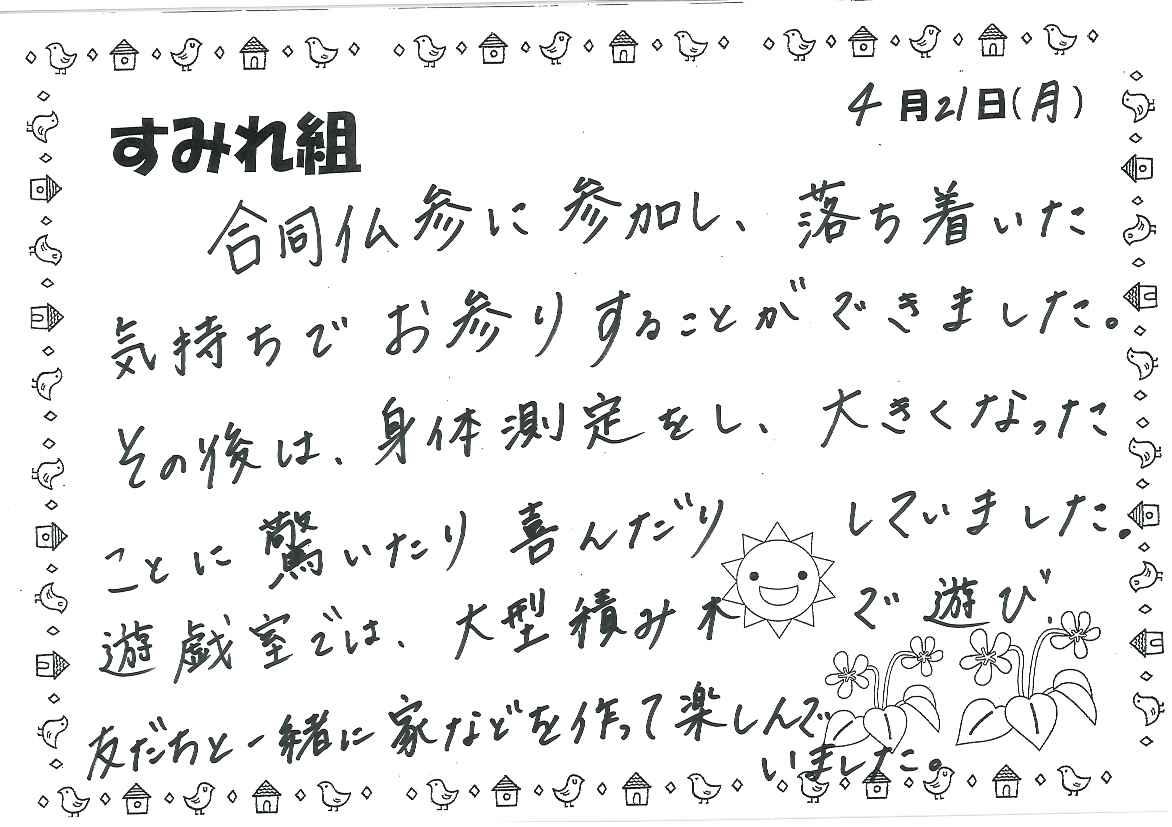 4月21日(月)
すみれ組
合同仏参に参加し、落ち着いた
気持ちでお参りすることができました。
その後は、身体測定をし、大きくなった
ことに驚いたり喜んだり していました。
遊戯室では、大型積み木 で遊び、
友だちと一緒に家などを作って楽しんで
いました。